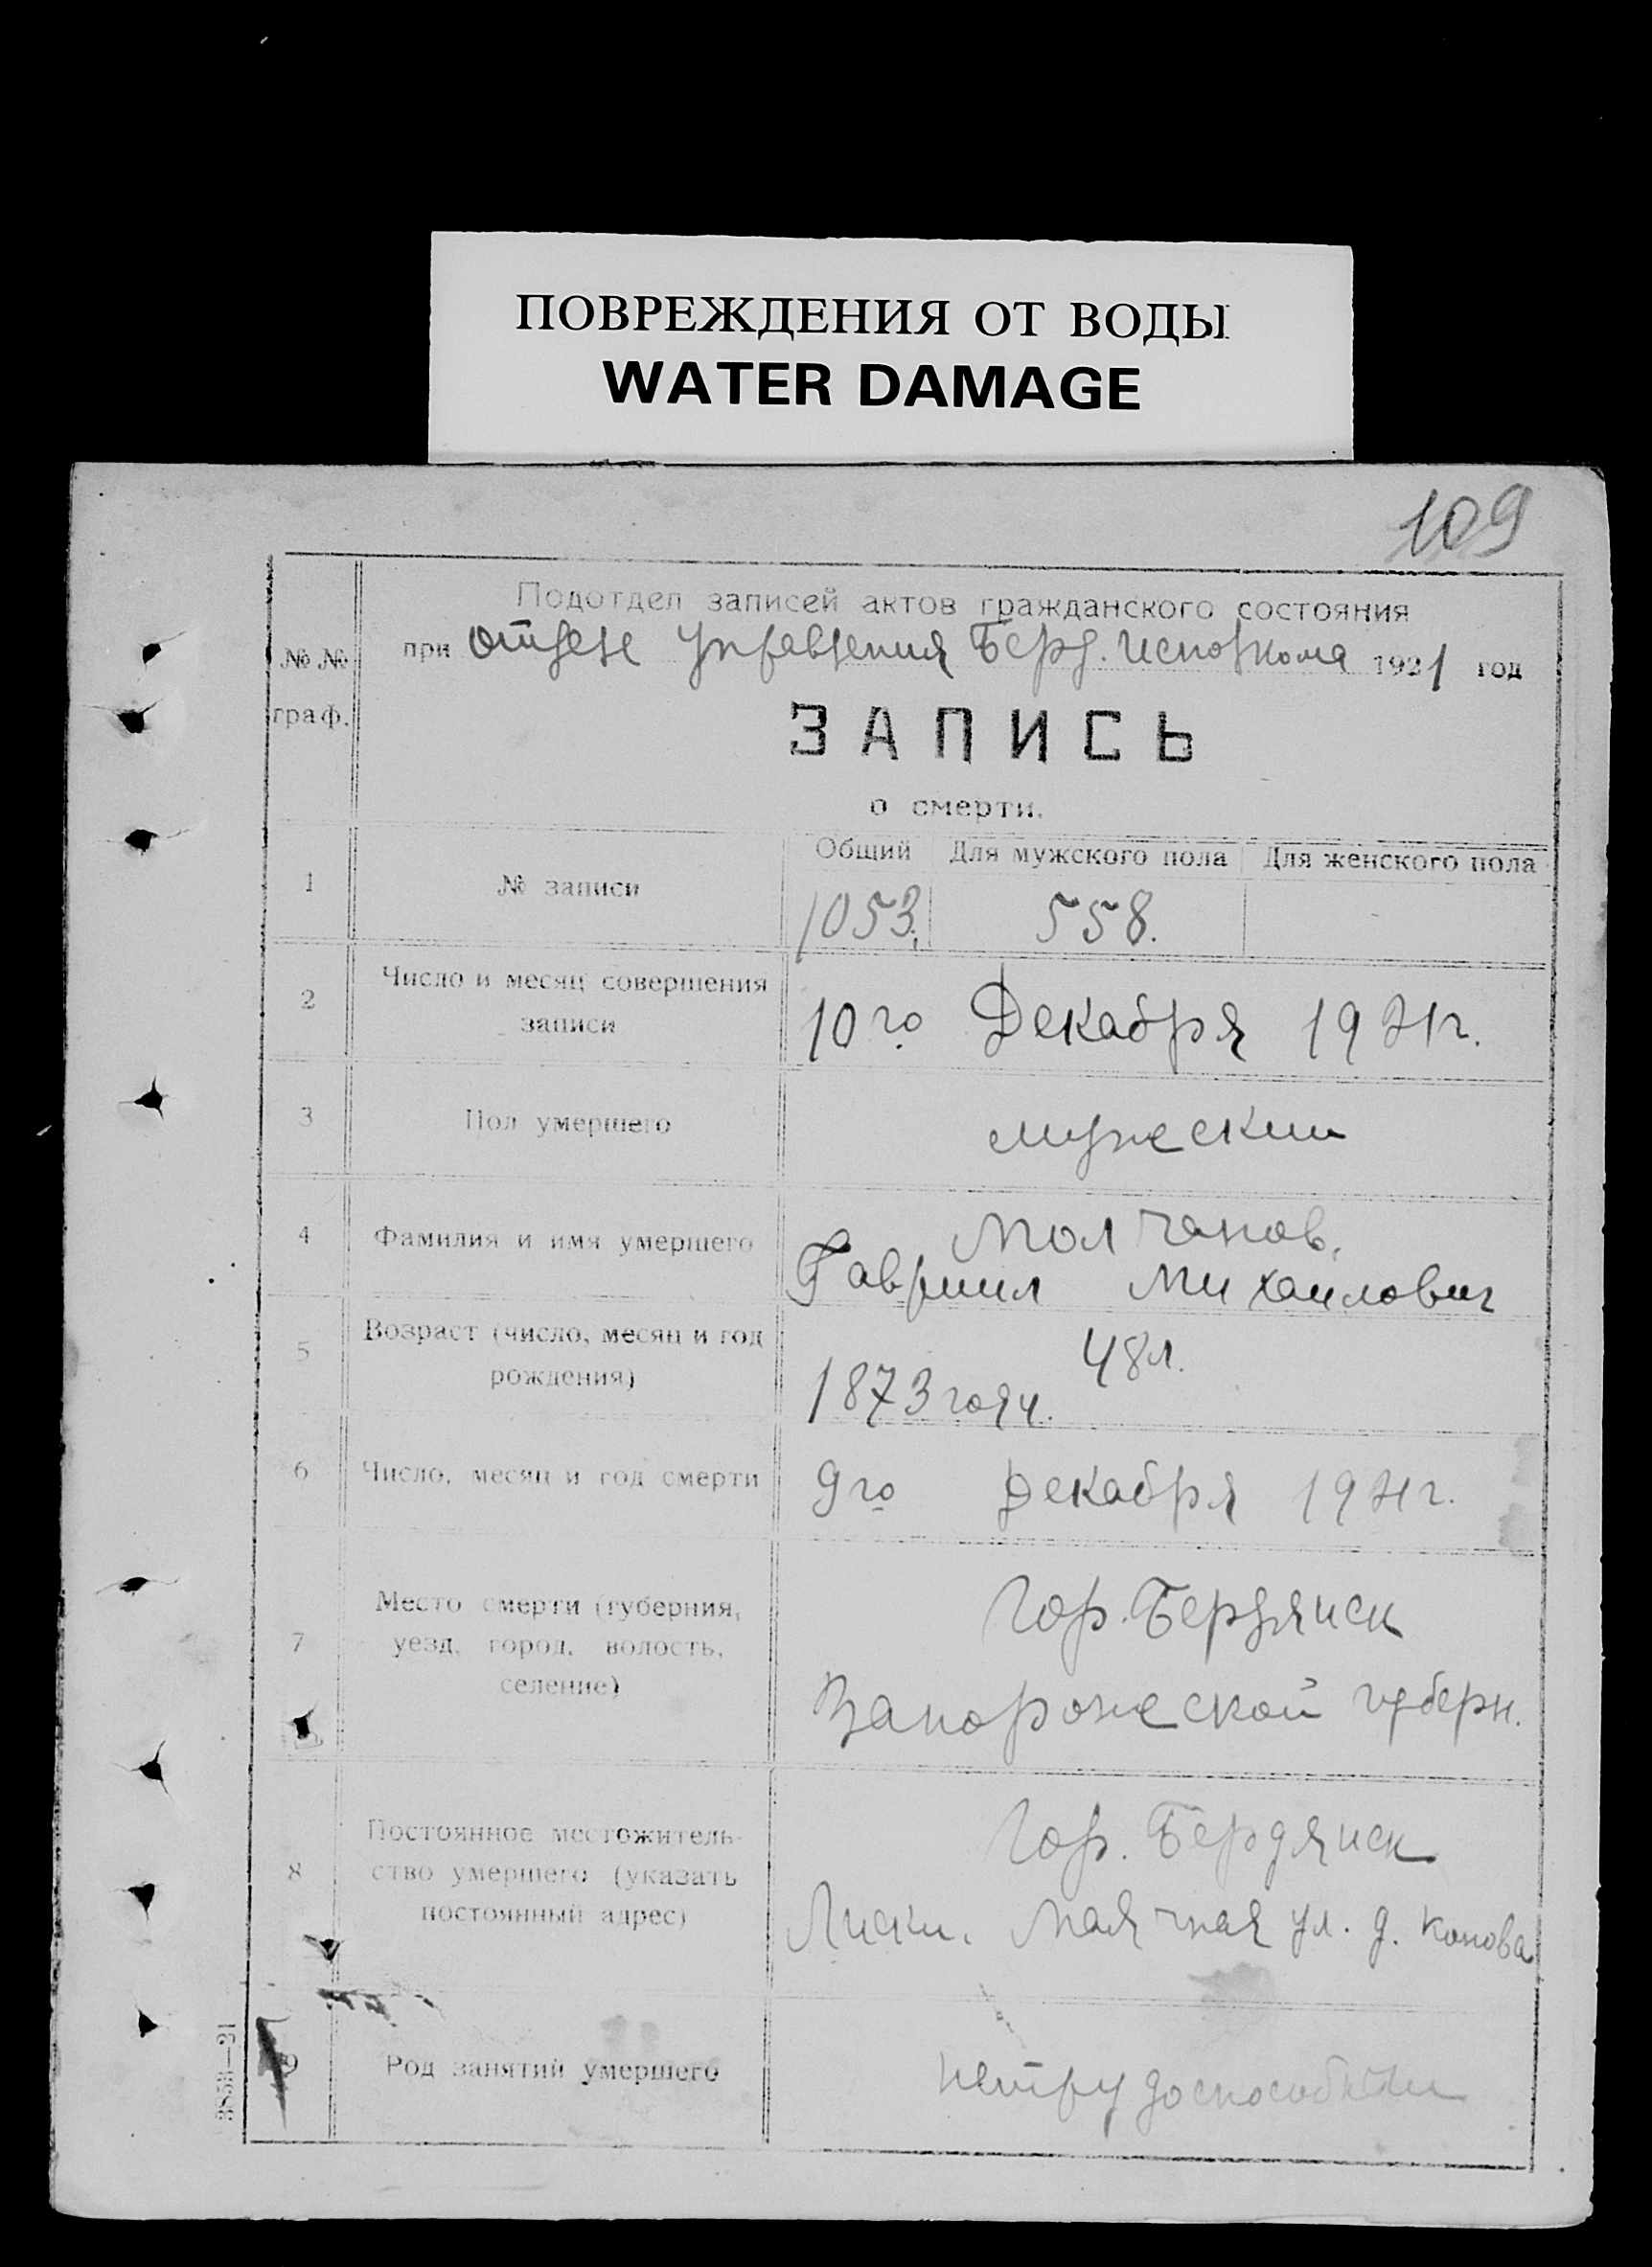 ПОВРЕЖДЕНИЯ ОТ ВОДЫ
WATER DAMAGE
109
Подотдел записей актов гражданского состояния
№ № при отделе Управления Берд. Исполкома 1921 год
граф.
ЗАПИСЬ
о смерти.
Общий Для мужского пола Для женского пола
1 № записи 1053. 558.
2 Число и месяц совершения
записи 10го Декабря 1921г.
3 Пол умершего мужеский
4 Фамилия и имя умершего Молчанов,
Гавриил Михаилович
5 Возраст (число, месяц и год
рождения) 48л.
1873 году.
6 Число, месяц и год смерти 9го Декабря 1921г.
Место смерти (губерния, Гор. Бердянск
7 уезд, город, волость,
селение) Запорожеской губерн.
Постоянное местожитель- Гор. Бердянск
8 ство умершего (указать
постоянный адрес) Лиски. Маячная ул. д. Конова
9 Род занятий умершего нетрудоспособный
3858—21